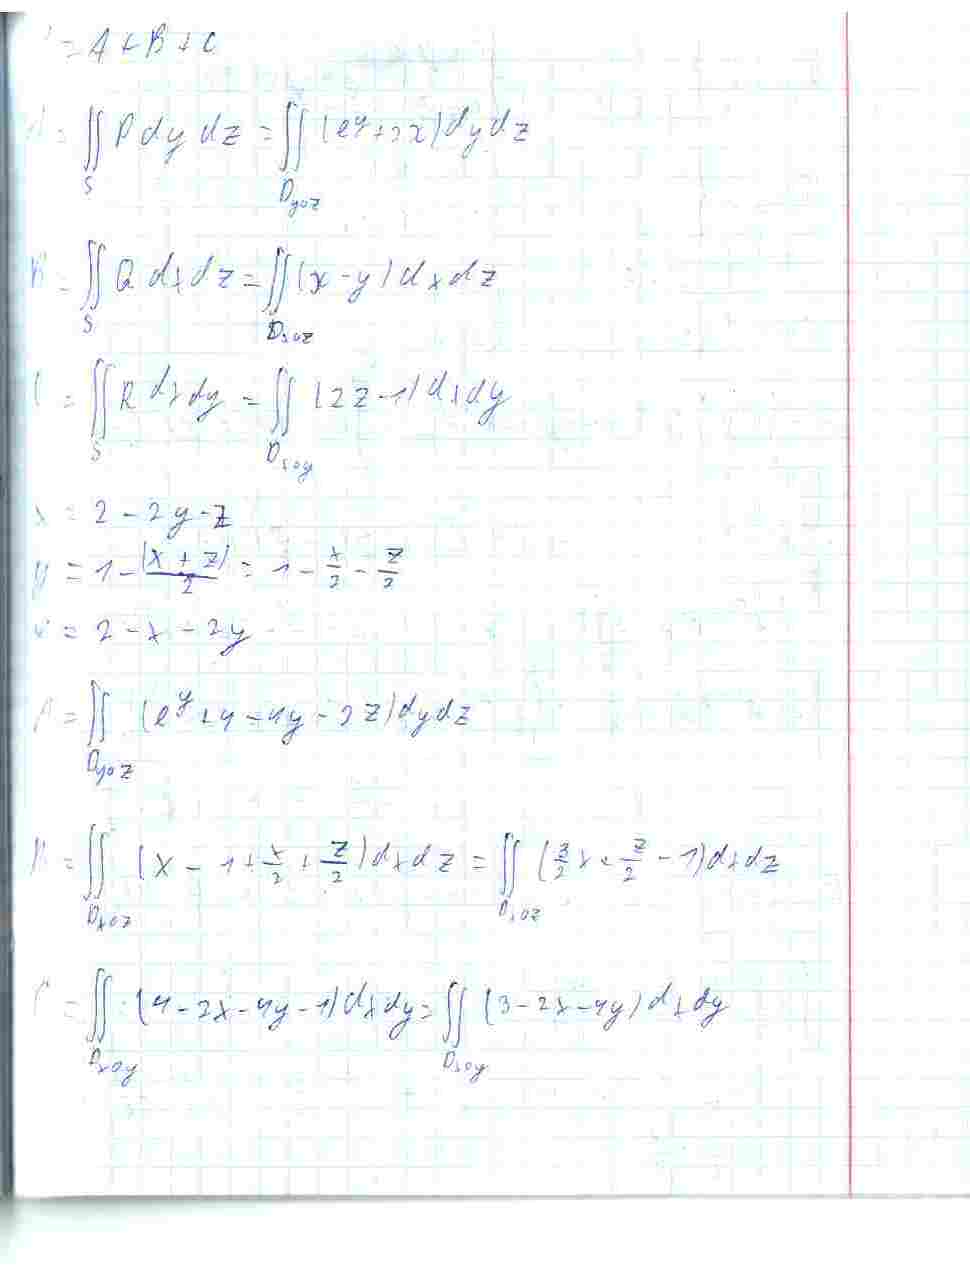 = A + B + C
A = ∬_S P dy dz = ∬_{D_{yoz}} (e^y + 2x) dy dz
B = ∬_S Q dx dz = ∬_{D_{xoz}} (x - y) dx dz
C = ∬_S R dx dy = ∬_{D_{xoy}} (2z - 1) dx dy
x = 2 - 2y - z
y = 1 - (x + z)/2 = 1 - x/2 - z/2
z = 2 - x - 2y
A = ∬_{D_{yoz}} (e^y + 4 - 4y - 2z) dy dz
B = ∬_{D_{xoz}} (x - 1 + x/2 + z/2) dx dz = ∬_{D_{xoz}} (3/2 x + z/2 - 1) dx dz
C = ∬_{D_{xoy}} (4 - 2x - 4y - 1) dx dy = ∬_{D_{xoy}} (3 - 2x - 4y) dx dy